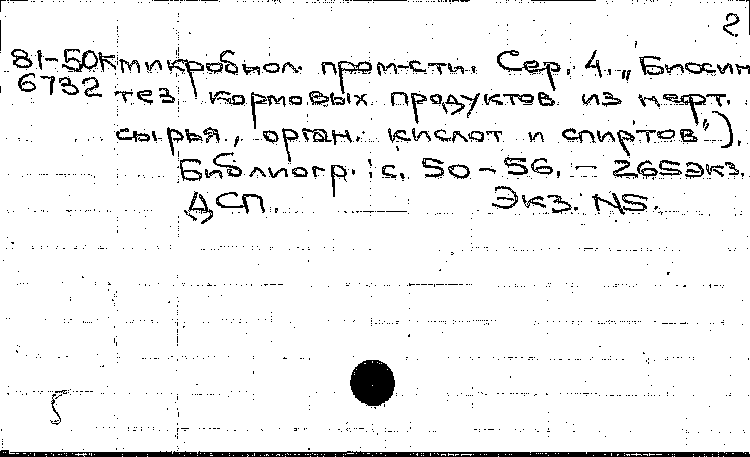 2
81-50к микробиол. пром-сти. Сер. 4. „Биосин
6732 тез кормовых продуктов из нефт.
сырья, орган. кислот и спиртов").
Библиогр.: с. 50-56. - 265 экз.
ДСП. Экз. N5.